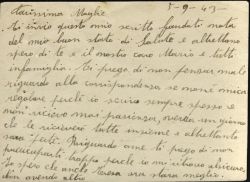 5-9-43-
Carissima Moglie
ti invio questo mio scritto facendoti nota
del mio buon stato di salute e altrettanto
spero di te e il nostro caro Mario e tutti
infamiglia. ti prego di non pensar male
riguardo alla corrispondenza se non é mica
regolar perché io scrivo sempre spesso e
non ricevo mai, pazienza, verrà un giorno
che le riceverò tutte insieme e altrettanto
sarà tutti. Riguardo a me ti prego di non
preocuparti troppo perché io mi ritrovo
Io spero che anche Teresa sia stara meglio.
avendo altro